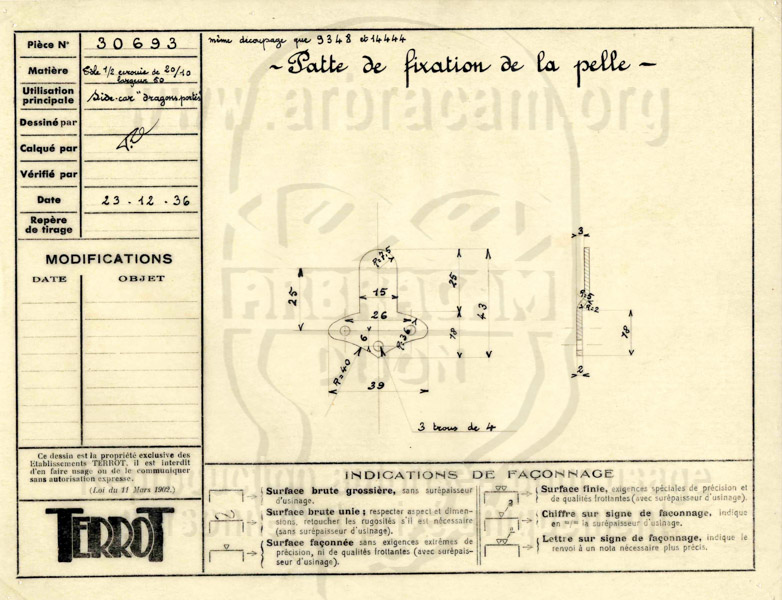 Pièce N° 30693
même découpage que 9348 et 14444
~ Patte de fixation de la pelle ~
Matière Tôle 1/2 écrouie de 20/10
largeur 50
Utilisation principale Side-car "dragons portés"
Dessiné par
Calqué par
Vérifié par
Date 23-12-36
Repère de tirage
MODIFICATIONS
DATE OBJET
www.arbracam.org
ARBRACAM
DIJON
R=7,5
15
26
6
R=36
R=40
39
25
25
43
18
3 trous de 4
3
R=5
R=2
18
2
Ce dessin est la propriété exclusive des
Etablissements TERROT, il est interdit
d'en faire usage ou de le communiquer
sans autorisation expresse.
(Loi du 11 Mars 1902.)
TERROT
INDICATIONS DE FAÇONNAGE
Surface brute grossière, sans surépaisseur
d'usinage.
Surface brute unie; respecter aspect et dimen-
sions, retoucher les rugosités s'il est nécessaire
(sans surépaisseur d'usinage).
Surface façonnée sans exigences extrêmes de
précision, ni de qualités frottantes (avec surépais-
seur d'usinage).
Surface finie, exigences spéciales de précision et
de qualités frottantes (avec surépaisseur d'usinage).
3
Chiffre sur signe de façonnage, indique
en m/m la surépaisseur d'usinage.
Lettre sur signe de façonnage, indique le
renvoi à un nota nécessaire plus précis.